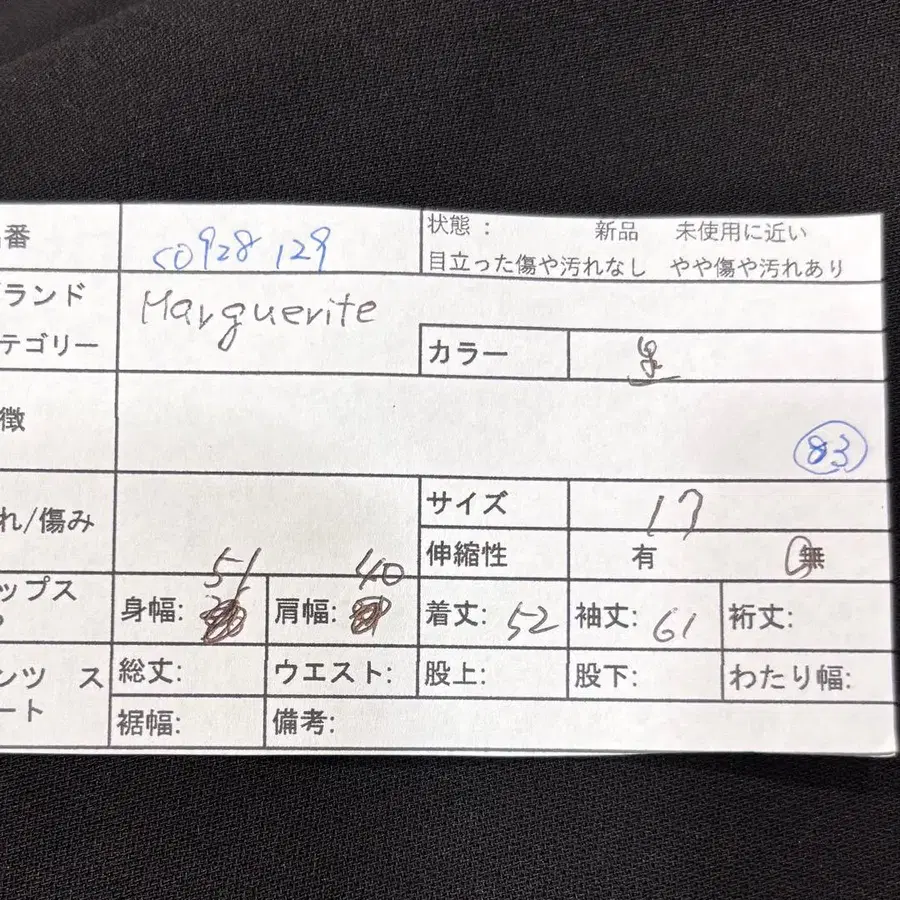 番 50928129 状態： 新品 未使用に近い
目立った傷や汚れなし やや傷や汚れあり
ランド Marguerite
テゴリー カラー 黒
徴 83
れ/傷み サイズ 17
伸縮性 有 無
ップス 身幅: 51 肩幅: 40 着丈: 52 袖丈: 61 裄丈:
ンツ ス 総丈: ウエスト: 股上: 股下: わたり幅:
ート 裾幅: 備考: